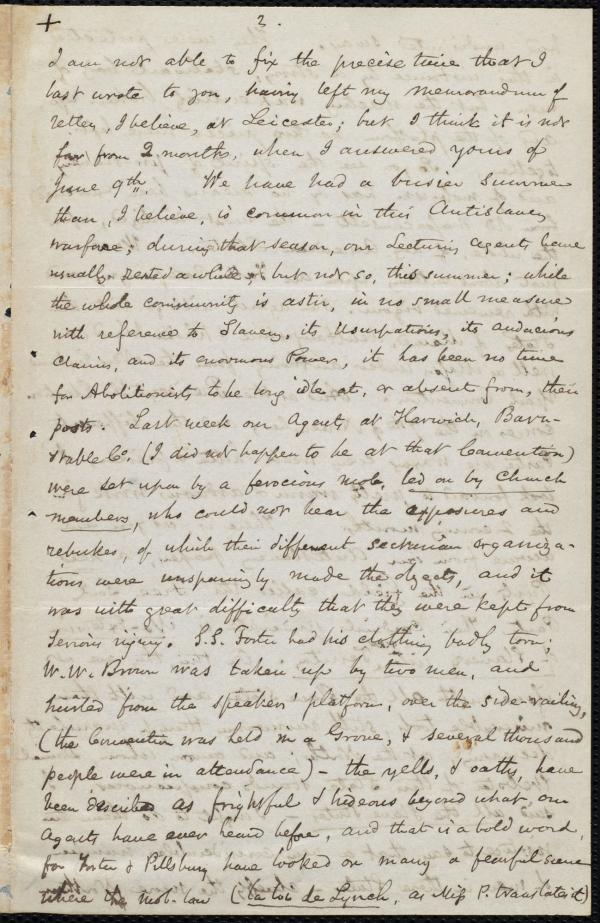 + 2.
I am not able to fix the precise time that I
last wrote to you, having left my memorandum of
letters, I believe, at Leicester; but I think it is not
far from 2 months, when I answered yours of
June 9th. We have had a busier summer
than, I believe, is common in this Antislavery
warfare; during that season, our Lecturing agents have
usually rested awhile; but not so, this summer; while
the whole community is astir, in no small measure
with reference to Slavery, its Usurpations, its audacious
claims, and its enormous Powers, it has been no time
for Abolitionists to be long idle at, or absent from, their
posts. Last week our Agents, at Harwich, Barn-
stable Co. (I did not happen to be at that Convention)
were set upon by a ferocious mob, led on by Church
members, who could not bear the exposures and
rebukes, of which their different sectarian organiza-
tions were unsparingly made the objects, and it
was with great difficulty that they were kept from
serious injury. S.S. Foster had his clothing badly torn;
W. W. Brown was taken up by two men, and
hurled from the speakers' platform, over the side-railing,
(the Convention was held in a Grove, & several thousand
people were in attendance) – the yells, & oaths, have
been described as frightful & hideous beyond what our
Agents have ever heard before, and that is a bold word,
for Foster & Pillsbury have looked on many a fearful scene
where the mob-law (la loi de Lynch, as Miss P. translates it)